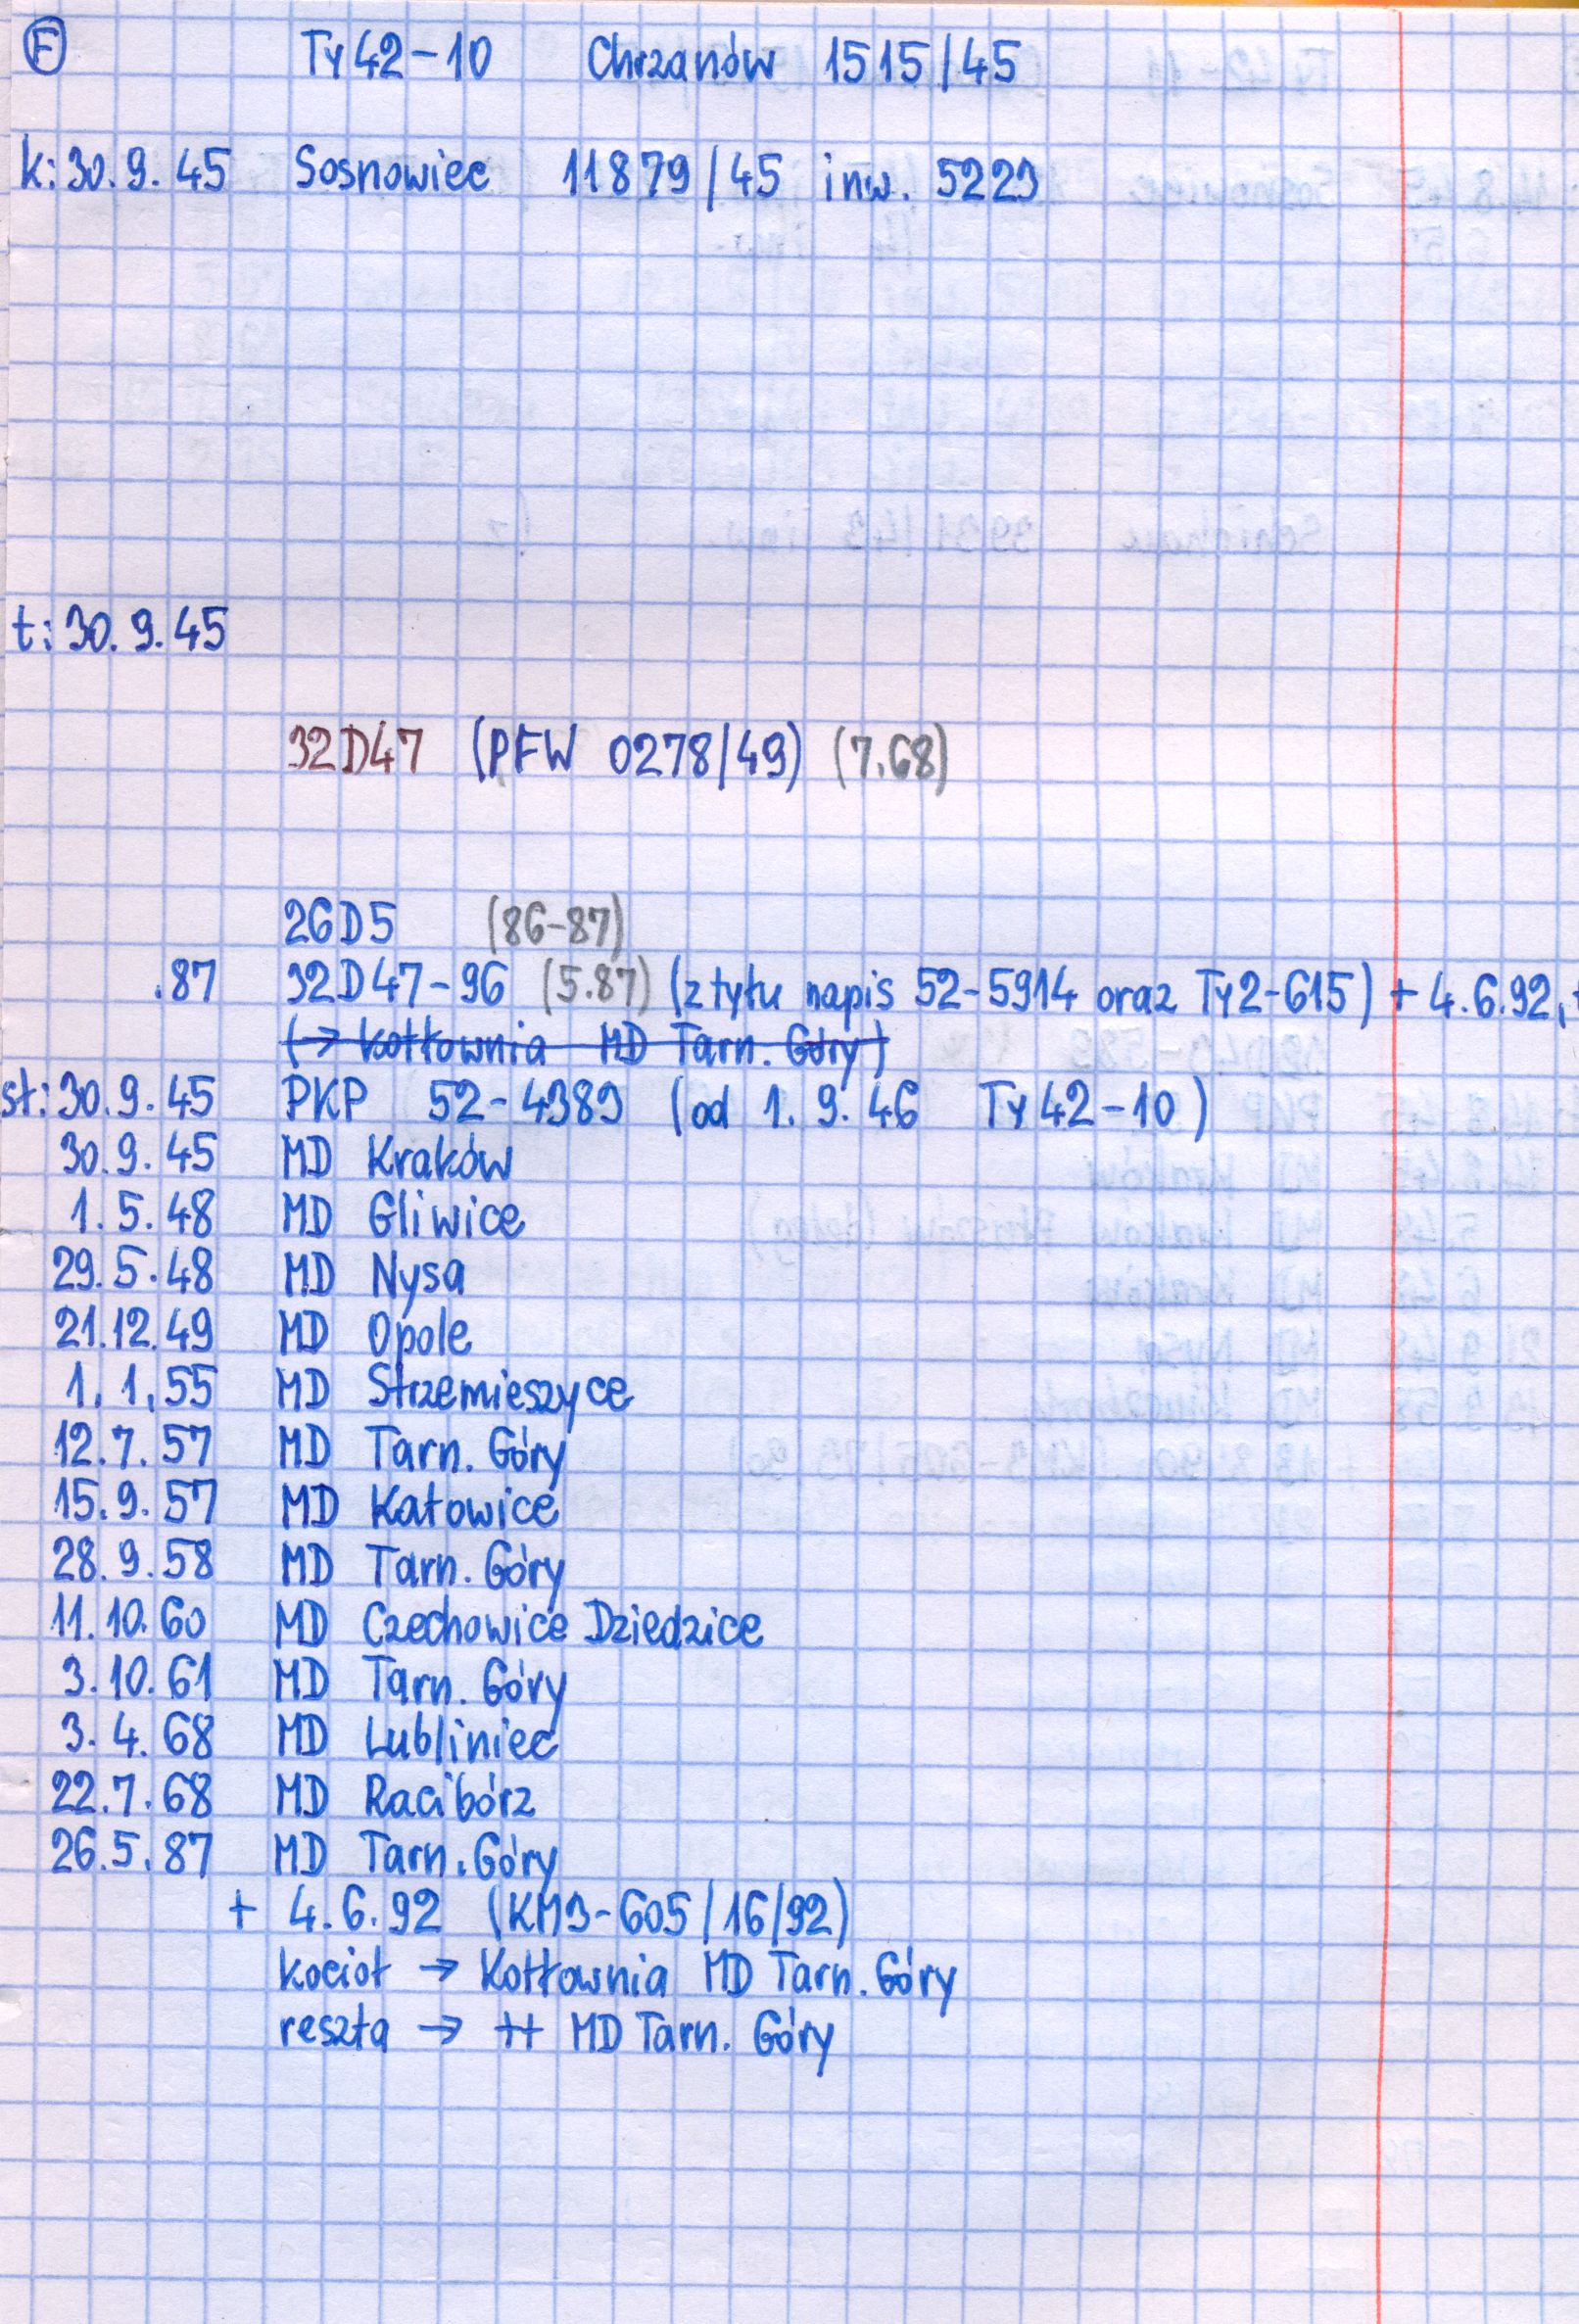 F Ty42-10 Chrzanów 1515/45
k: 30.9.45 Sosnowiec 11879/45 inw. 5223
t: 30.9.45
32D47 (PFW 0278/49) (7.68)
26D5 (86-87)
.87 32D47-96 (5.87) (z tyłu napis 52-5914 oraz Ty2-615) + 4.6.92,
(→ kotłownia MD Tarn. Góry)
st: 30.9.45 PKP 52-4389 (od 1.9.46 Ty42-10)
30.9.45 MD Kraków
1.5.48 MD Gliwice
29.5.48 MD Nysa
21.12.49 MD Opole
1.1.55 MD Strzemieszyce
12.7.57 MD Tarn. Góry
15.9.57 MD Katowice
28.9.58 MD Tarn. Góry
11.10.60 MD Czechowice Dziedzice
3.10.61 MD Tarn. Góry
3.4.68 MD Lubliniec
22.7.68 MD Racibórz
26.5.87 MD Tarn. Góry
+ 4.6.92 (KM3-605/16/92)
kocioł → Kotłownia MD Tarn. Góry
reszta → ++ MD Tarn. Góry